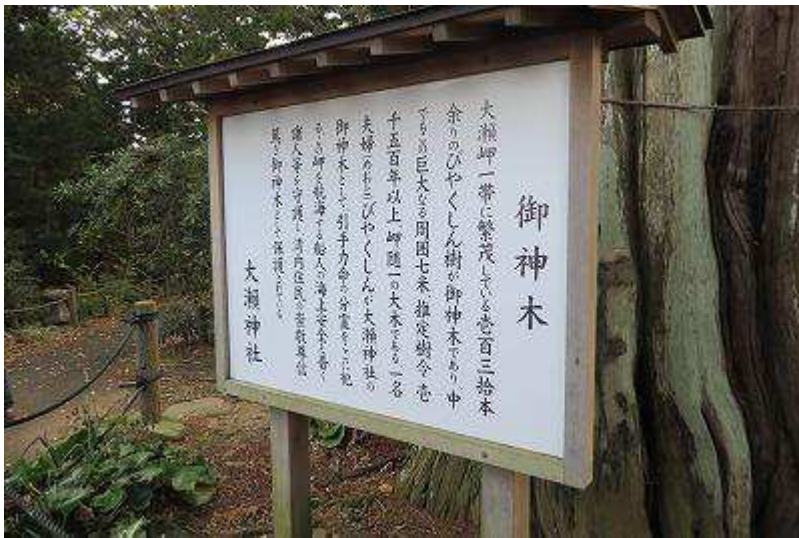 御神木
大瀬岬一帯に繁茂している壱百三拾本
余りのびやくしん樹が御神木であり中
でもこの巨大なる周囲七米推定樹令壱
千五百年以上岬随一の大木である一名
夫婦(めおと)びやくしんが大瀬神社の
御神木として引手力命の分霊をここに祀
る この岬を航海する船人の海上安全を
諸人等を守護し湾内住民の
篤き御神木として保護されている
大瀬神社